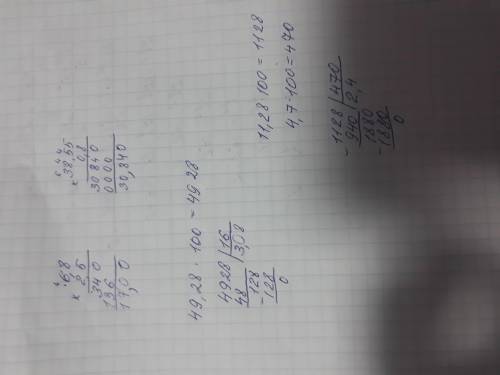 4
× 6,8
2,5
340
136
17,00
6 4 4
× 38,55
0,8
30840
0000
30,840
49,28 · 100 = 4928
4928 | 16
48 | 3,08
-128
128
0
11,28 · 100 = 1128
4,7 · 100 = 470
- 1128 | 470
940 | 2,4
1880
- 1880
0